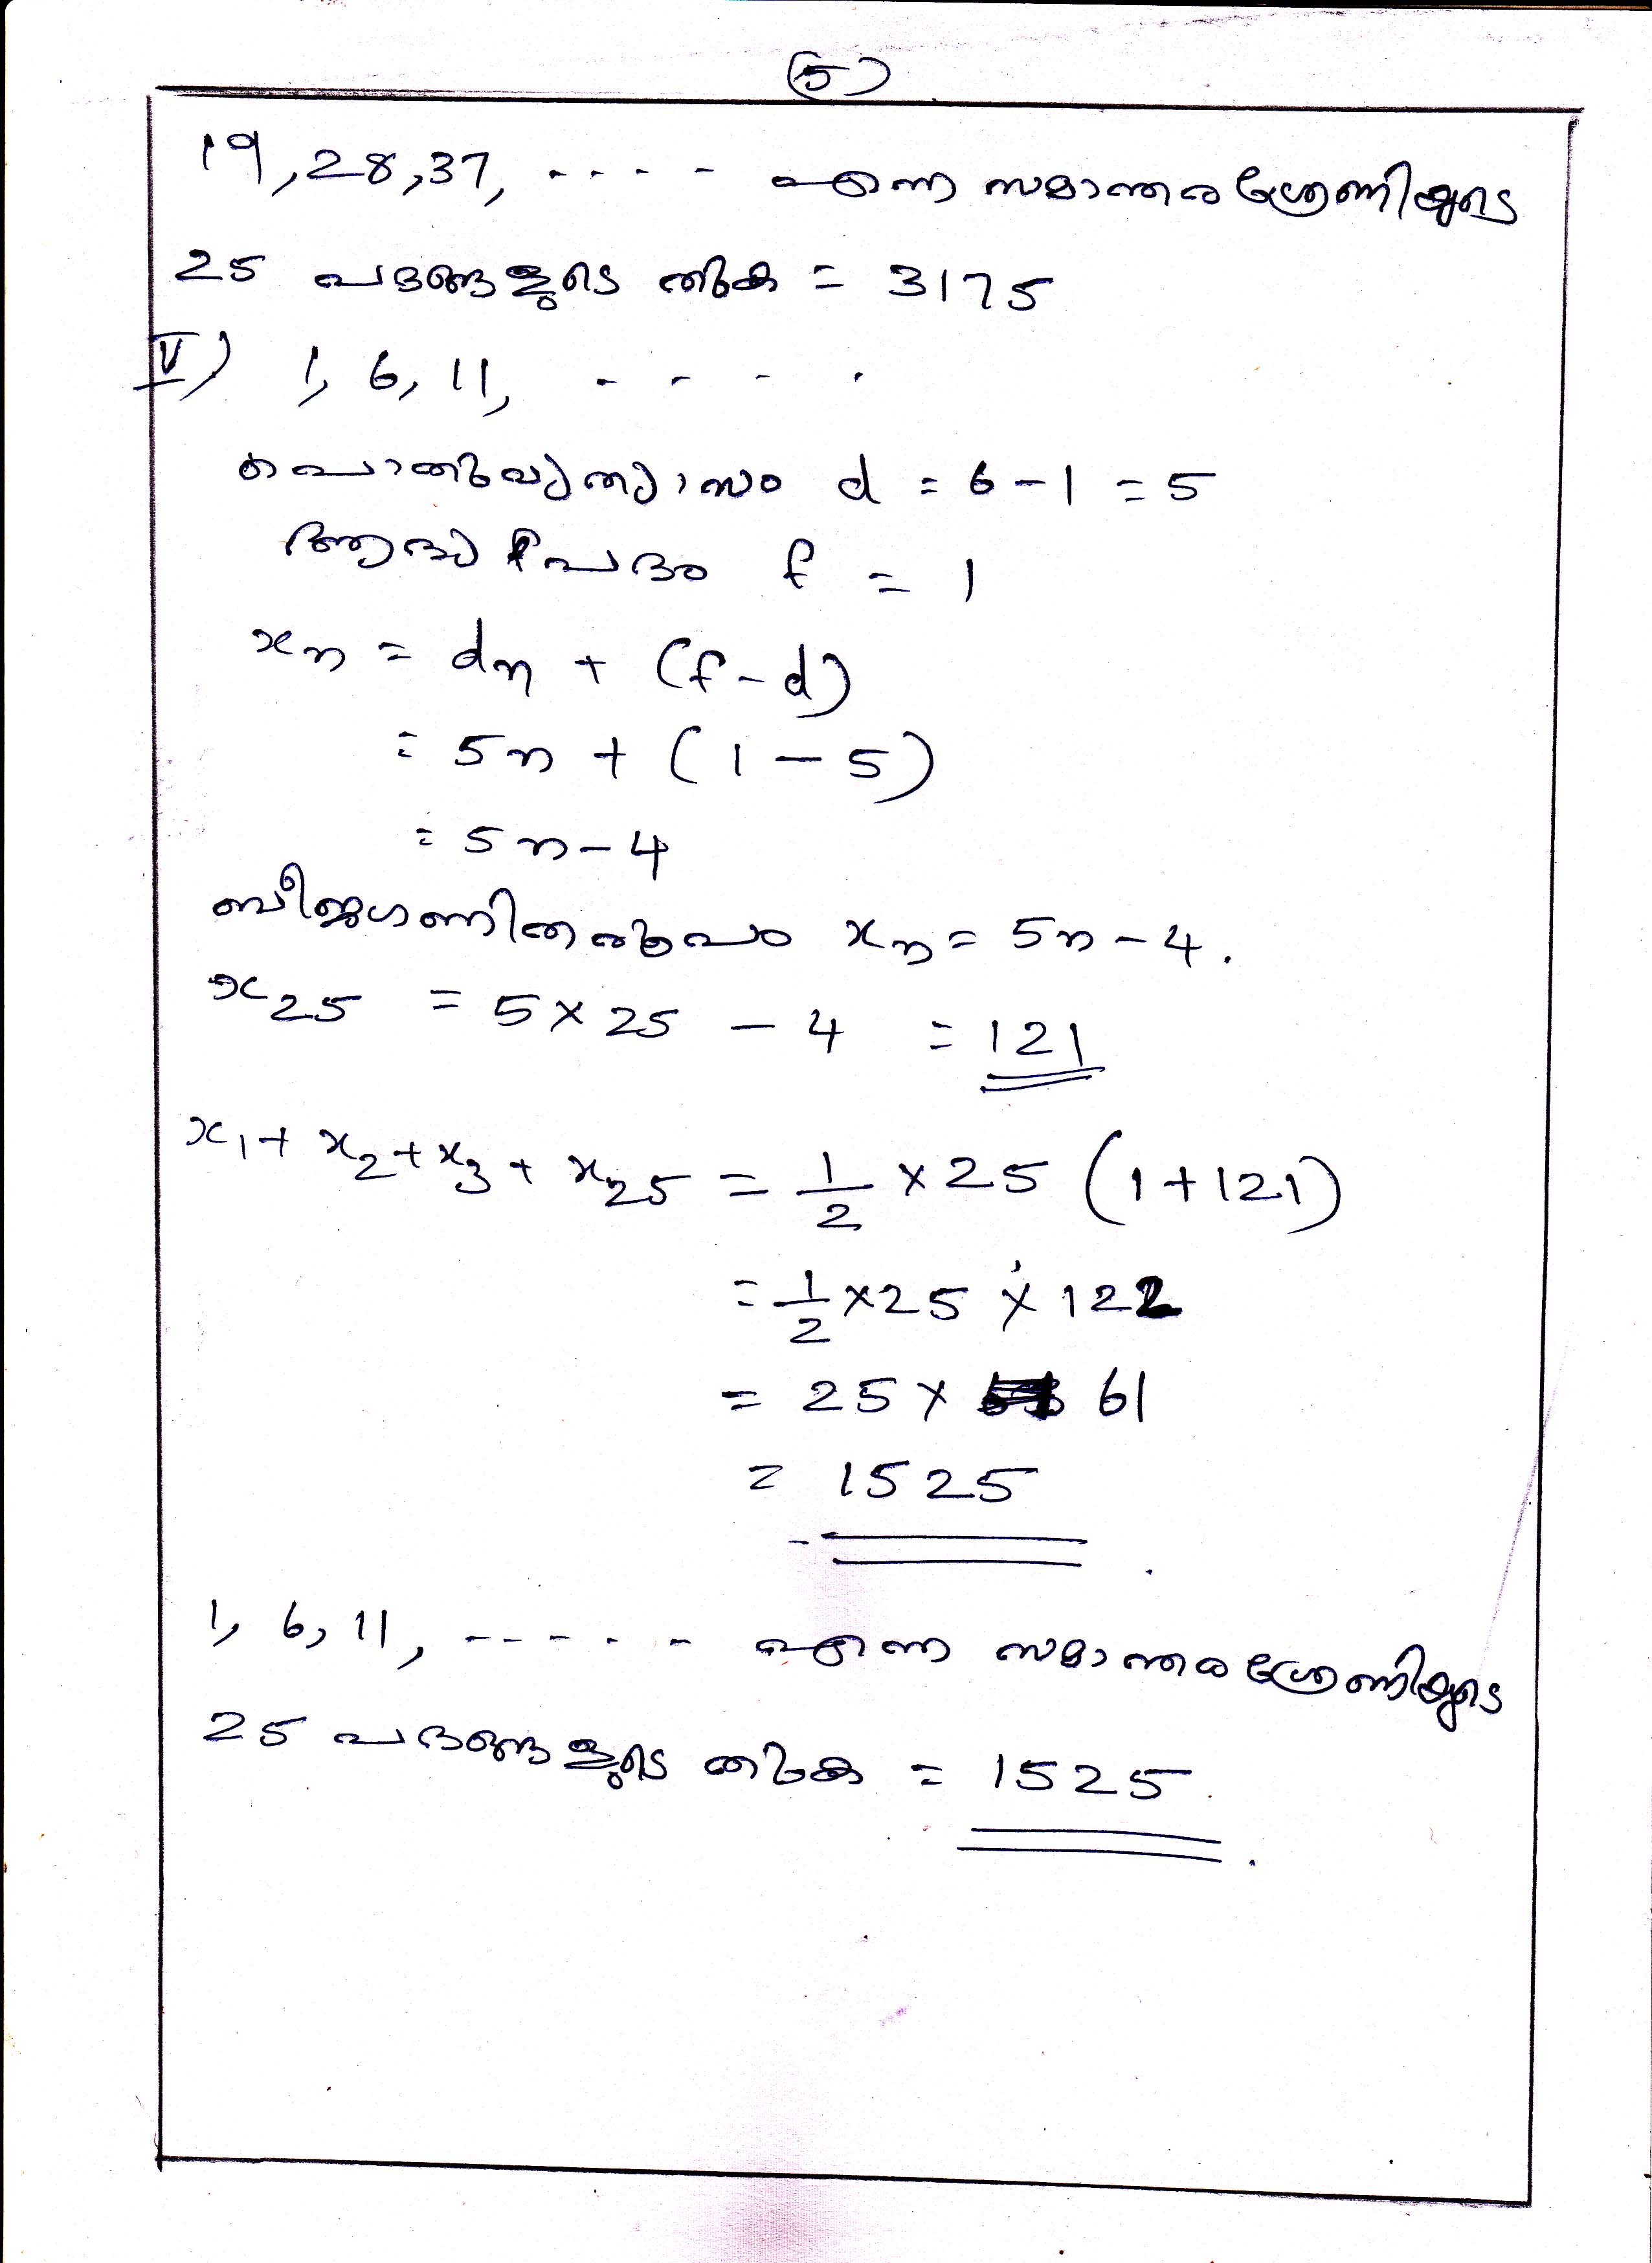 (5)
19, 28, 37, - - - - എന്ന സമാന്തരശ്രേണിയുടെ
25 പദങ്ങളുടെ തുക = 3175
V) 1, 6, 11, - - - .
പൊതുവ്യത്യാസം d = 6 - 1 = 5
ആദ്യപദം f = 1
xn = dn + (f - d)
= 5n + (1 - 5)
= 5n - 4
ബീജഗണിതരൂപം xn = 5n - 4.
x25 = 5 × 25 - 4 = 121
x1 + x2 + x3 + x25 = 1/2 × 25 (1 + 121)
= 1/2 × 25 × 122
= 25 × 61
= 1525
1, 6, 11, - - - - - എന്ന സമാന്തരശ്രേണിയുടെ
25 പദങ്ങളുടെ തുക = 1525.